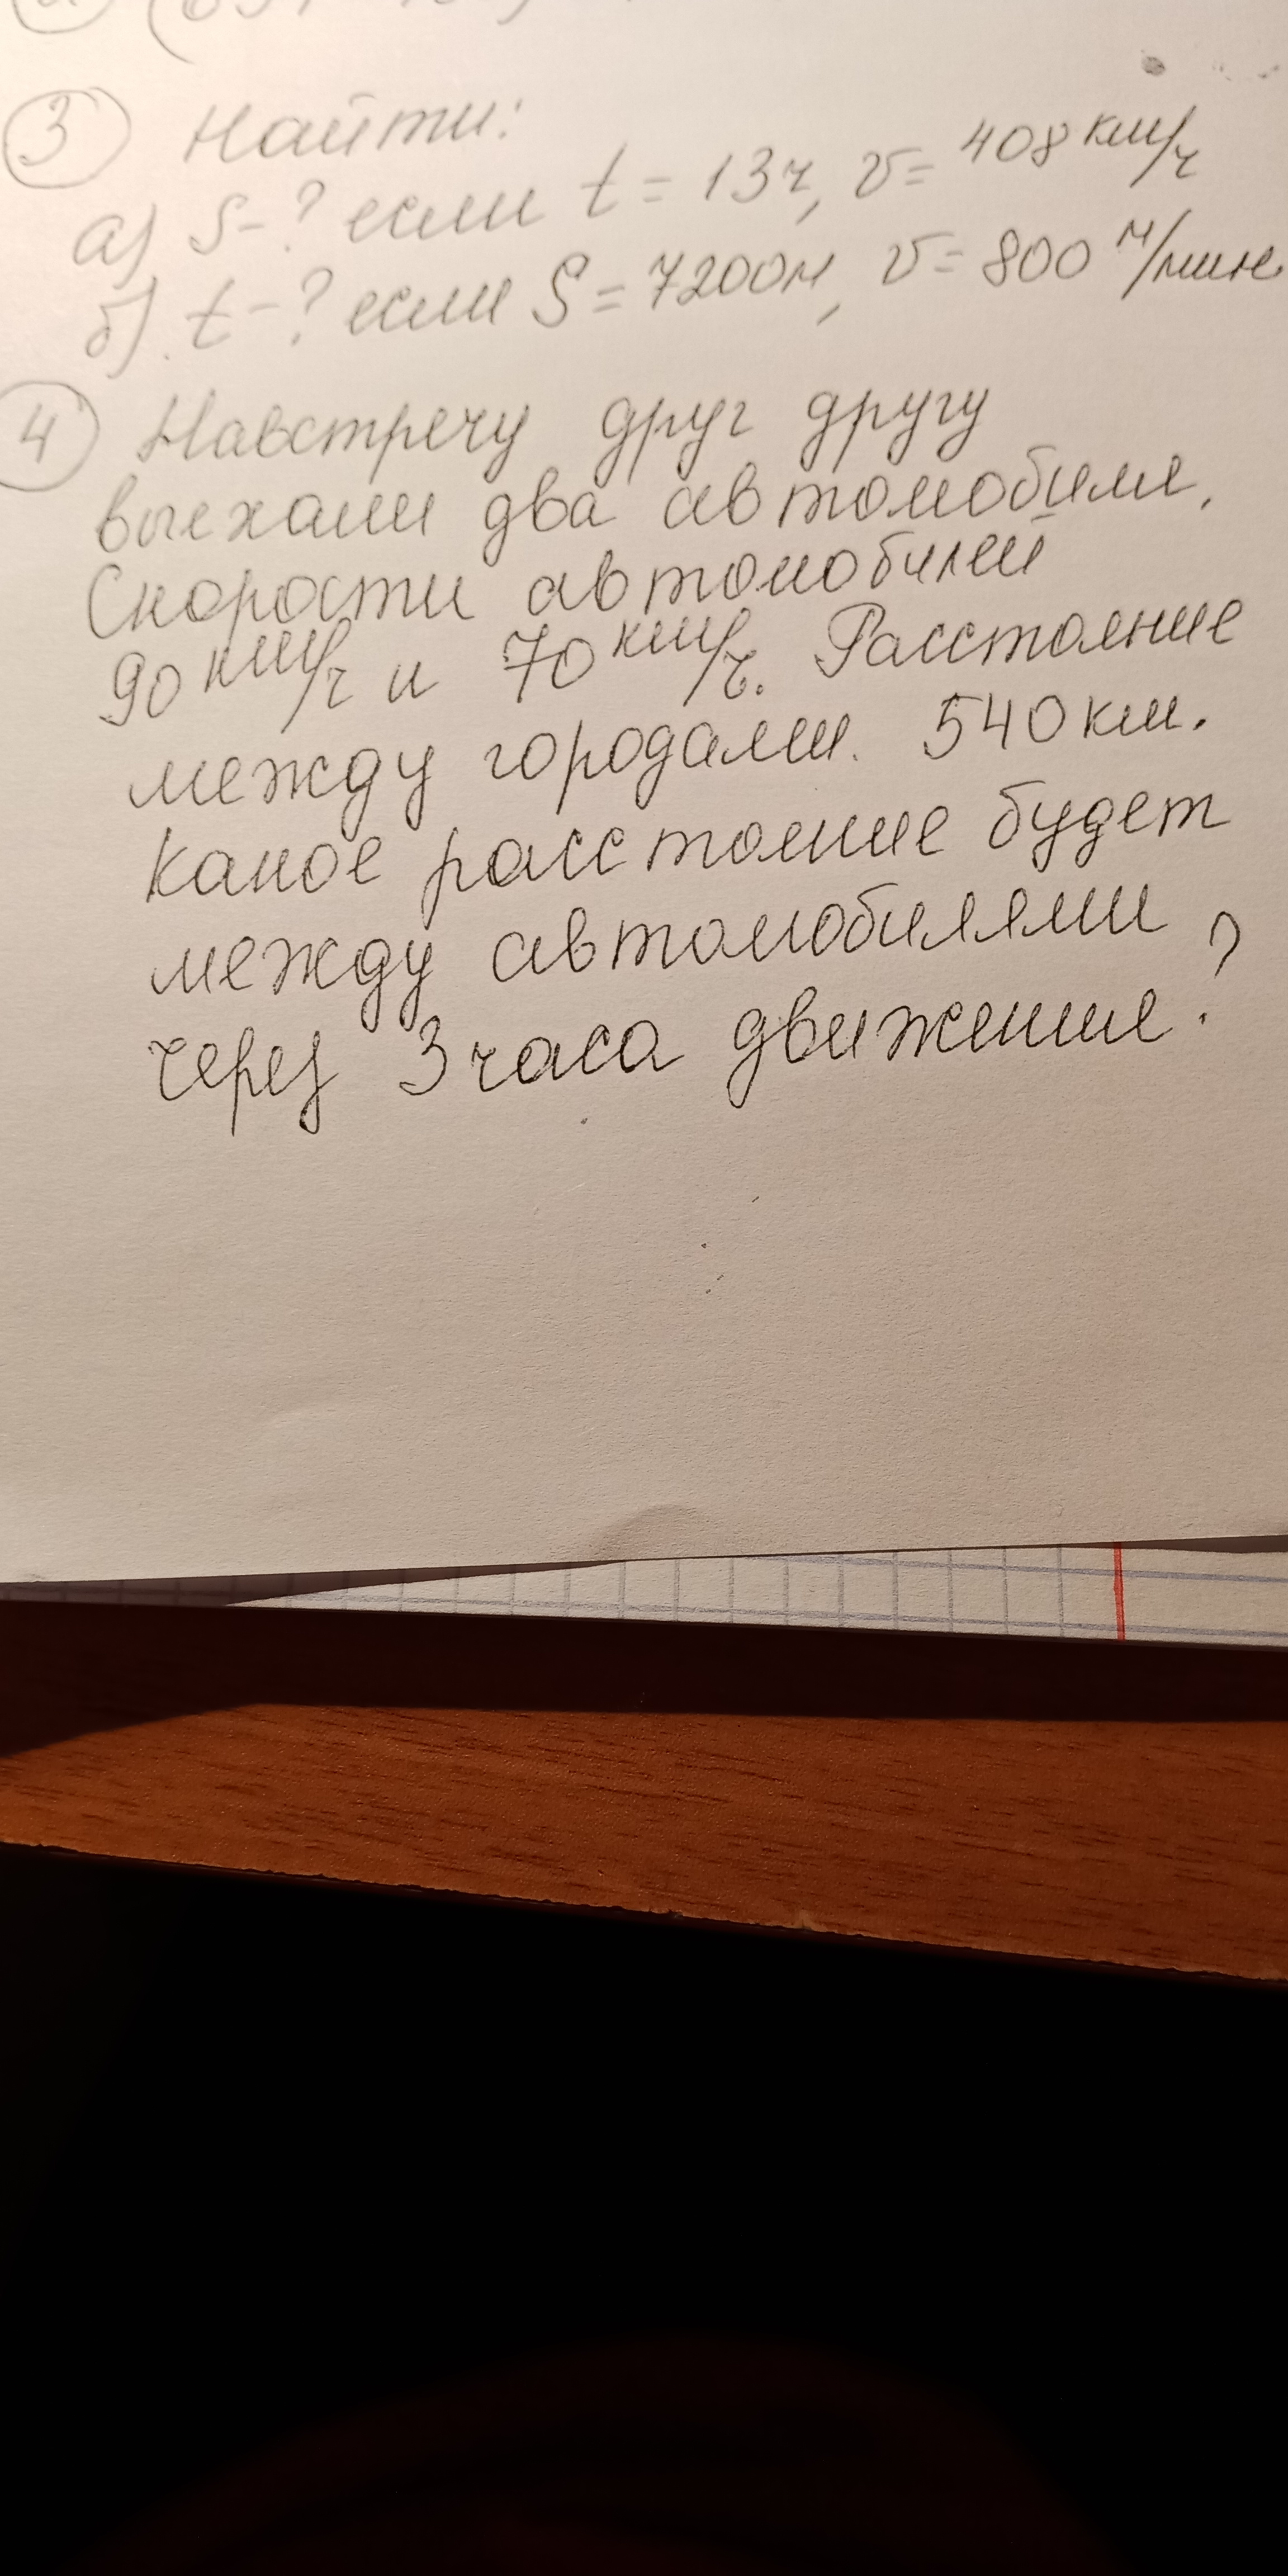 ③ Найти:
а) S-? если t = 13ч, v = 408 км/ч
б) t-? если S = 7200м, v = 800 м/мин
④ Навстречу друг другу
выехали два автомобиля.
Скорости автомобилей
90 км/ч и 70 км/ч. Расстояние
между городами. 540 км.
Какое расстояние будет
между автомобилями
через 3 часа движение?